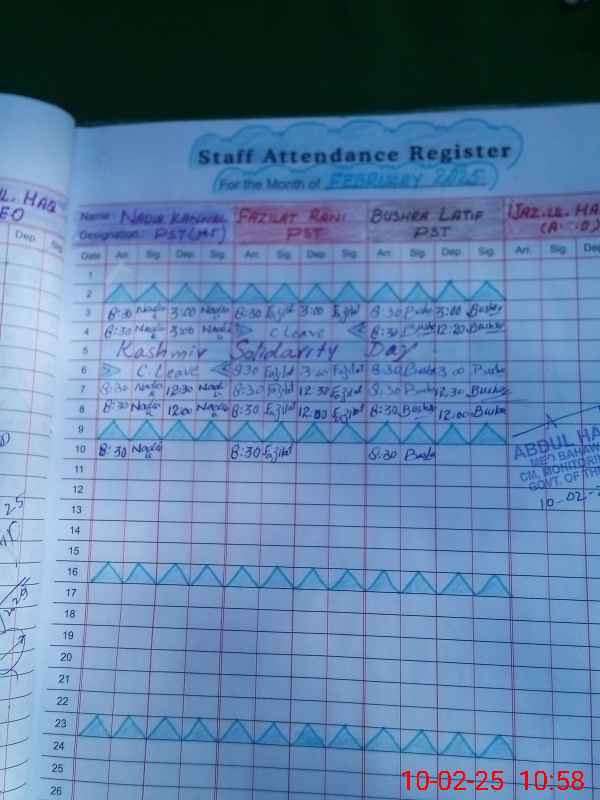 Staff Attendance Register
For the Month of FEBRUARY 2025
UL. HAQ
EO
Name : NADIA KANWAL FAZILAT RANI BUSHRA LATIF IJAZ.UL. HA
Designation: PST(MS) PST PST (A.E.O)
Dep. Sig. Date Arr. Sig. Dep. Sig. Arr. Sig. Dep. Sig. Arr. Sig. Dep. Sig. Arr. Sig. Dep.
1
2
3 8:30 Nadia 3:00 Nadia 8:30 Fazilat 3:00 Fazilat 8:30 Bushra 3:00 Bushra
4 8:30 Nadia 3:00 Nadia C Leave 8:30 Bushra 12:20 Bushra
5 Kashmir Solidarity Day
6 C Leave 8:30 Fazilat 3:00 Fazilat 8:30 Bushra 3:00 Bushra
7 8:30 Nadia 12:30 Nadia 8:30 Fazilat 12:30 Fazilat 8:30 Bushra 12:30 Bushra
8 8:30 Nadia 12:00 Nadia 8:30 Fazilat 12:00 Fazilat 8:30 Bushra 12:00 Bushra
9
10 8:30 Nadia 8:30 Fazilat 8:30 Bushra
ABDUL HA
MEO BAHAW
CM. MONITORIN
GOVT. OF TH
10-02-2
11
12
13
14
15
16
17
18
19
20
21
22
23
24
25
26
10-02-25 10:58